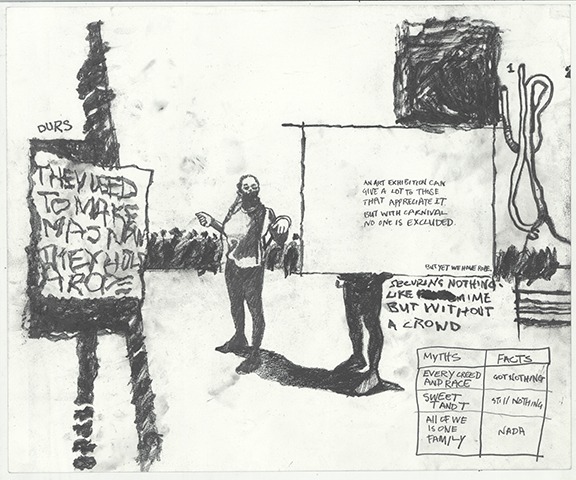 OURS
THEY NEED
TO MAKE
MAS NAH
THEY HOLD
A ROPE
1
2
AN ART EXHIBITION CAN
GIVE A LOT TO THOSE
THAT APPRECIATE IT.
BUT WITH CARNIVAL
NO ONE IS EXCLUDED.
BUT YET WE HAVE ROPE.
SECURING NOTHING.
LIKE MIME
BUT WITHOUT
A CROWD
MYTHS FACTS
EVERY CREED
AND RACE
GOT NOTHING
SWEET
T AND T
STILL NOTHING
ALL OF WE
IS ONE
FAMILY
NADA